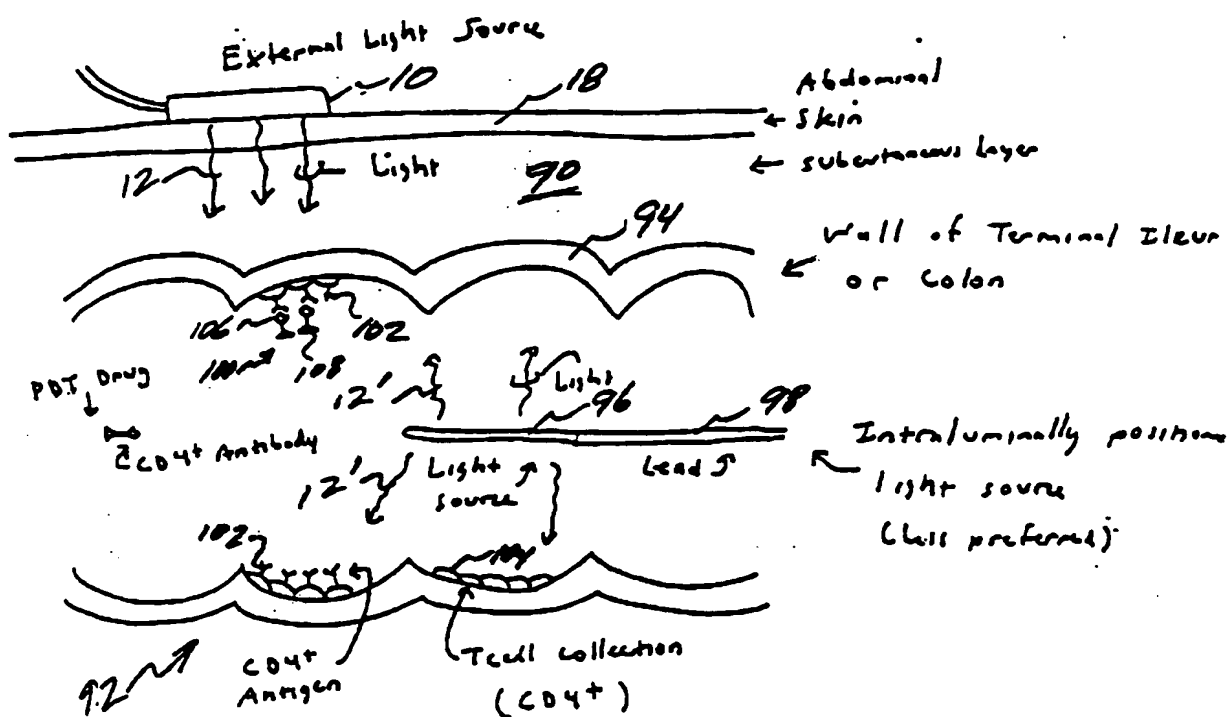 External Light Source
10
18
Abdominal
Skin
Subcutaneous Layer
12
Light
90
94
Wall of Terminal Ileum
or Colon
106
102
100
108
PDT Drug
12'
Light
96
98
CD4+ Antibody
Intraluminally
light source
(less preferred)
12'
Light
source
Lead
102
104
92
CD4+
Antigen
Tcell collection
(CD4+)